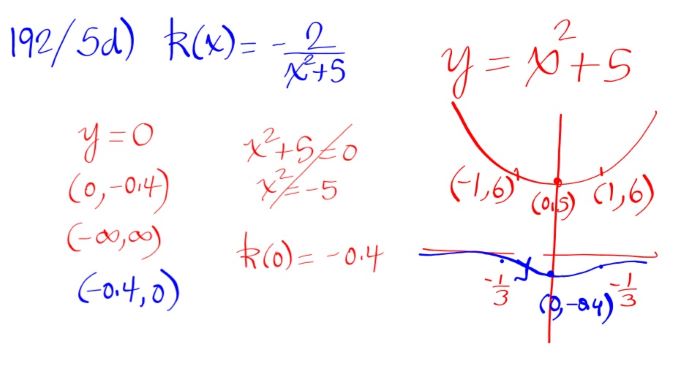 192/5d) k(x) = -2/(x²+5)
y = x² + 5
y = 0
(0, -0.4)
(-∞, ∞)
(-0.4, 0)
x² + 5 = 0
x² = -5
k(0) = -0.4
(-1, 6) (0,5) (1, 6)
-1/3 (0, -0.4) -1/3